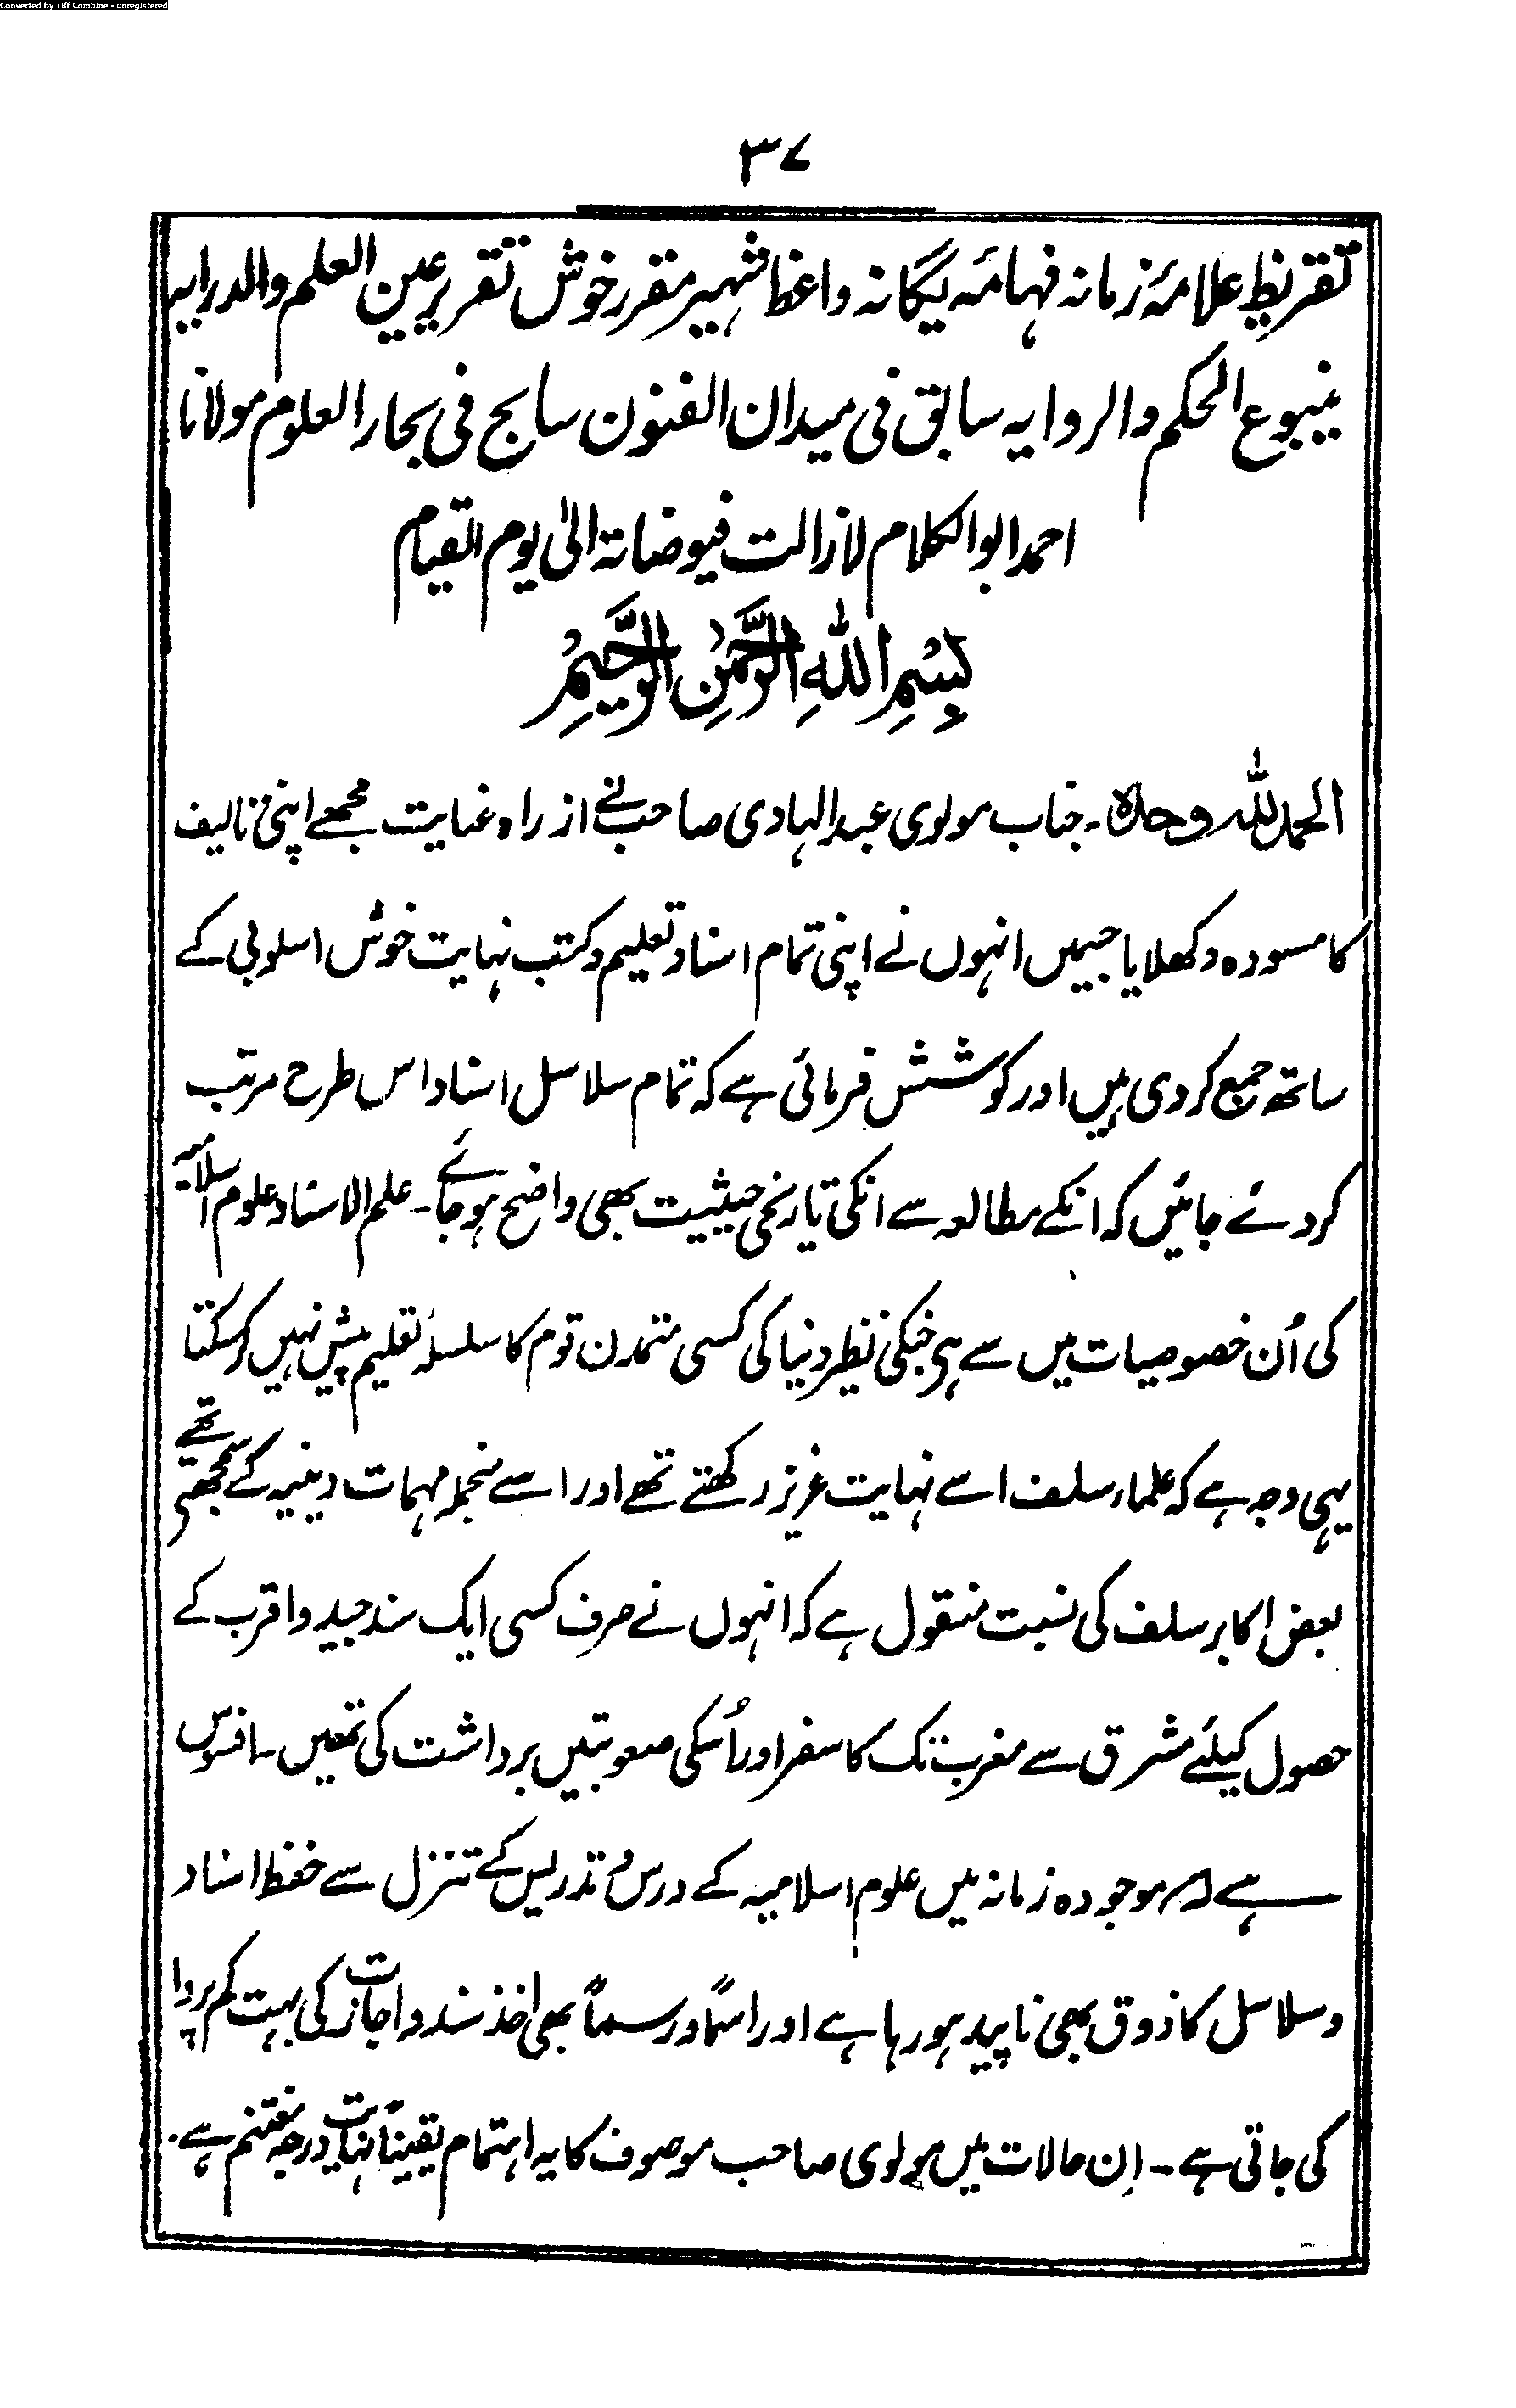 Converted by Tiff Combine - unregistered
۳۷
تقریظ علامۂ زمانہ فہامۂ یگانہ واعظ شہیر مقرر خوش تقریر عین العلم والدرایہ
ینبوع الحکم والروایہ سابق فی میدان الفنون سابح فی بحار العلوم مولانا
احمد ابوالکلام لازالت فیوضاتہ الیٰ یوم القیام
بِسْمِ اللّٰهِ الرَّحْمٰنِ الرَّحِیْمِ
الحمدللّٰہ وحدہ ۔ جناب مولوی عبدالہادی صاحب نے از راہ عنایت مجھے اپنی تالیف
کا مسودہ دکھلایا جسمیں انہوں نے اپنی تمام اسناد تعلیم و کتب نہایت خوش اسلوبی کے
ساتھ جمع کردی ہیں اور کوشش فرمائی ہے کہ تمام سلاسل اسناد اس طرح مرتب
کردئے جائیں کہ انکے مطالعہ سے انکی تاریخی حیثیت بھی واضح ہوجائے ۔ علم الاسناد علوم اسلامیہ
کی اُن خصوصیات میں سے ہی جنکی نظیر دنیا کی کسی متمدن قوم کا سلسلۂ تعلیم پیش نہیں کرسکتا
یہی وجہ ہے کہ علماء سلف اسے نہایت عزیز رکھتے تھے اور اسے منجملہ مہمات دینیہ کے سمجھتے تھے
بعض اکابر سلف کی نسبت منقول ہے کہ انہوں نے صرف کسی ایک سند جید و اقرب کے
حصول کیلئے مشرق سے مغرب تک کا سفر اور اُسکی صعوبتیں برداشت کی تھیں ۔ افسوس
ہے کہ موجودہ زمانہ میں علوم اسلامیہ کے درس و تدریس کے تنزل سے حفظ اسناد
و سلاسل کا ذوق بھی ناپید ہو رہا ہے اور اسماً و رسماً بھی اخذ سند و اجازت کی بہت کم پروا
کی جاتی ہے ۔ اِن حالات میں مولوی صاحب موصوف کا یہ اہتمام یقیناً نہایت درجہ مغتنم ہے ۔